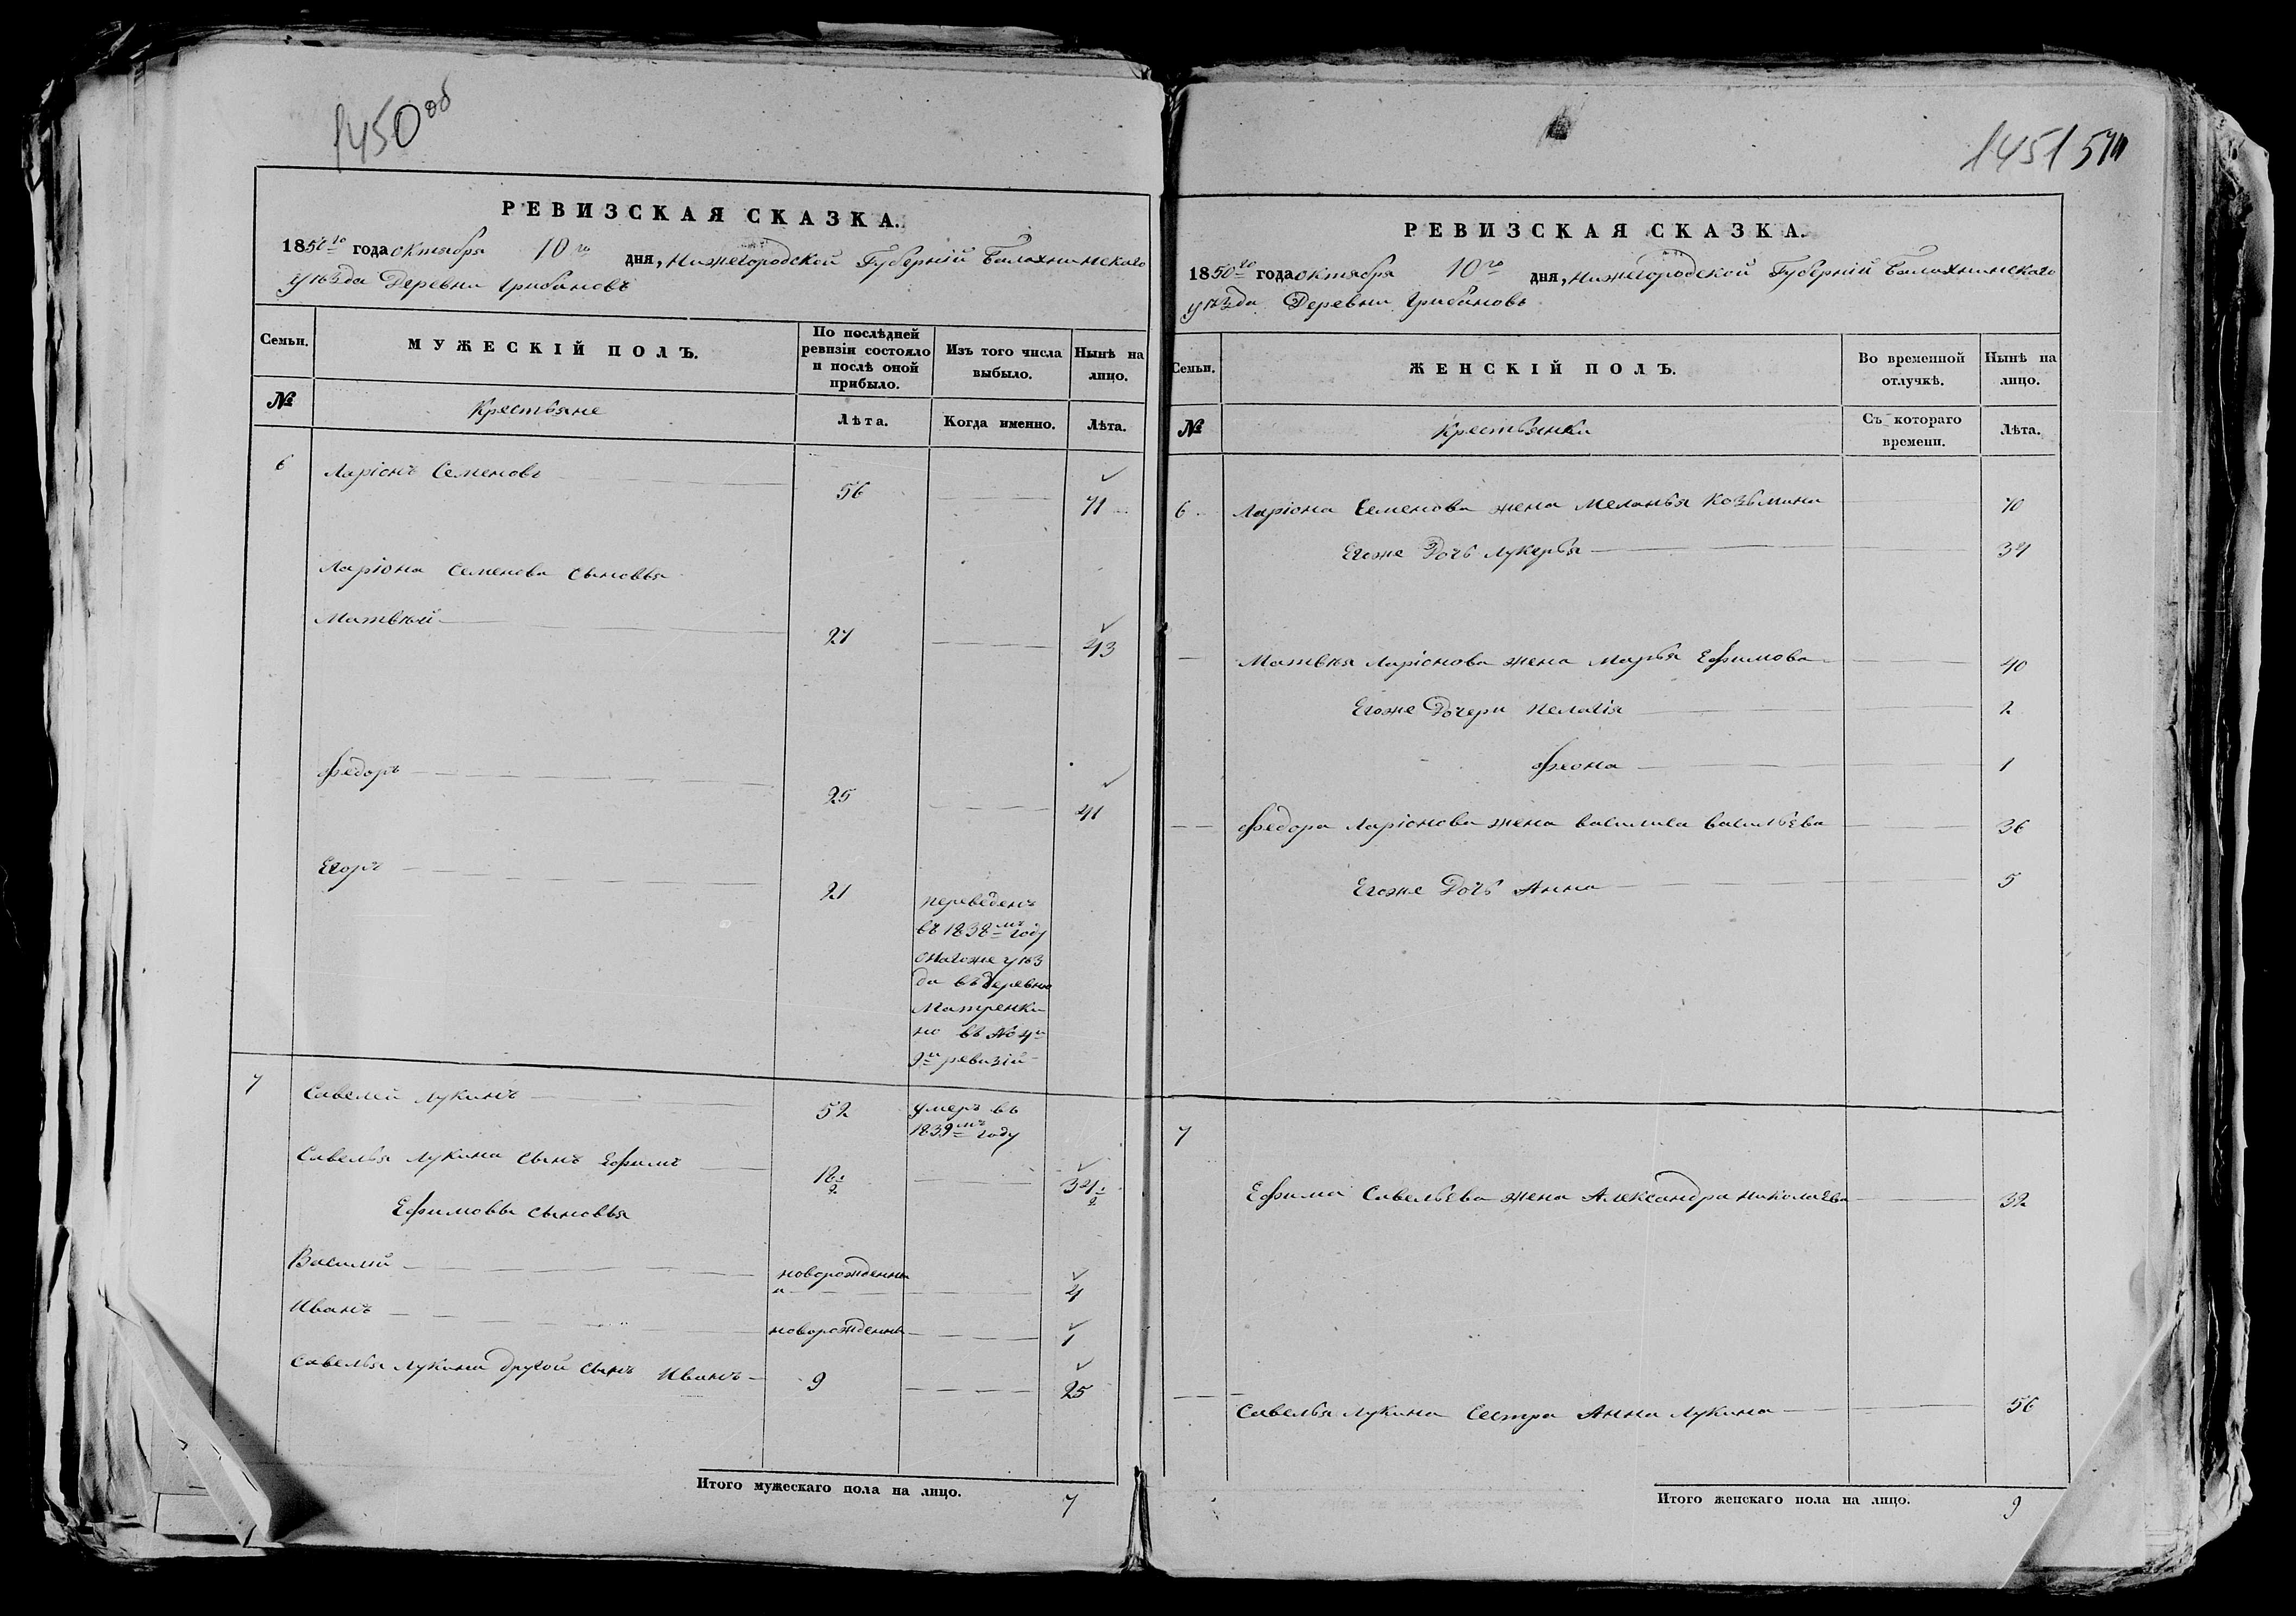 1450 об
РЕВИЗСКАЯ СКАЗКА.
1850го года октября 10го дня, Нижегородской Губерніи Балахнинскаго
уѣзда Деревни Грибановъ
Семьи.
МУЖЕСКІЙ ПОЛЪ.
По послѣдней
ревизіи состояло
и послѣ оной
прибыло.
Изъ того числа
выбыло.
Нынѣ на
лицо.
№
Крестьяне
Лѣта.
Когда именно.
Лѣта.
6 Ларіонъ Семеновъ 56 71
Ларіона Семенова сыновья
Матвѣй 27 43
Федоръ 25 41
Егоръ 21 переведенъ
въ 1838мъ году
онагоже уѣз
да въ деревню
Матренки
но въ № 4й
9й ревизіи
7 Савелей Лукинъ 52 умеръ въ
1839мъ году
Савелья Лукина сынъ Ефимъ 18 1/2 34 1/2
Ефимовы сыновья
Василий новорожденны
й 4
Иванъ новорожденны 1
Савелья Лукина другой сынъ Иванъ 9 25
Итого мужескаго пола на лицо. 7
1451
РЕВИЗСКАЯ СКАЗКА.
1850го года октября 10го дня, Нижегородской Губерніи Балахнинскаго
уѣзда Деревни Грибановъ
Семьи.
ЖЕНСКІЙ ПОЛЪ.
Во временной
отлучкѣ.
Нынѣ на
лицо.
№
Крестьянки
Съ котораго
времени.
Лѣта.
6 Ларіона Семенова жена Меланья Козьмина 70
Егоже Дочь Лукерья 37
Матвѣя Ларіонова жена Марья Ефимова 40
Егоже Дочери Пелагія 2
Феона 1
Федора Ларіонова жена Василиса Васильева 36
Егоже Дочь Анна 5
7
Ефима Савельева жена Александра Николаева 32
Савелья Лукина Сестра Анна Лукина 56
Итого женскаго пола на лицо. 9